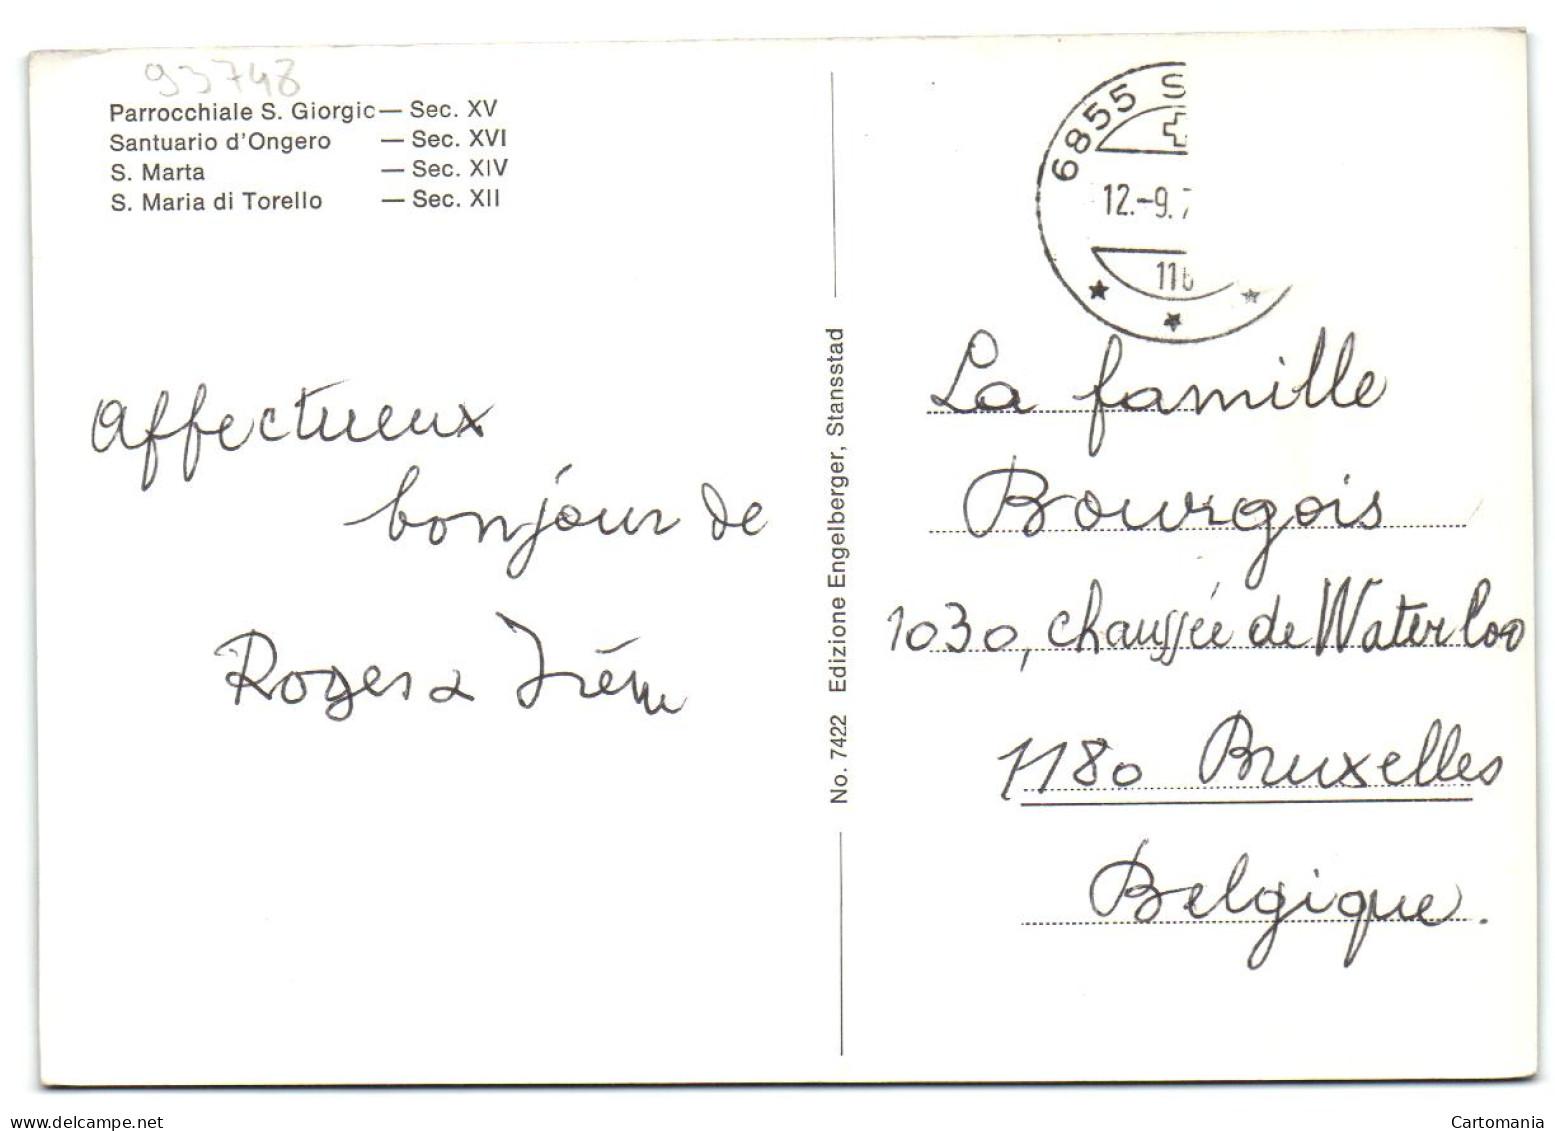 93748
Parrocchiale S. Giorgio — Sec. XV
Santuario d'Ongero — Sec. XVI
S. Marta — Sec. XIV
S. Maria di Torello — Sec. XII
6855 S
12.-9.7
11
Affectueux
bonjour de
Roger & Irène
No. 7422 Edizione Engelberger, Stansstad
La famille
Bourgois
1030, chaussée de Waterloo
1180 Bruxelles
Belgique.
www.delcampe.net
Cartomania